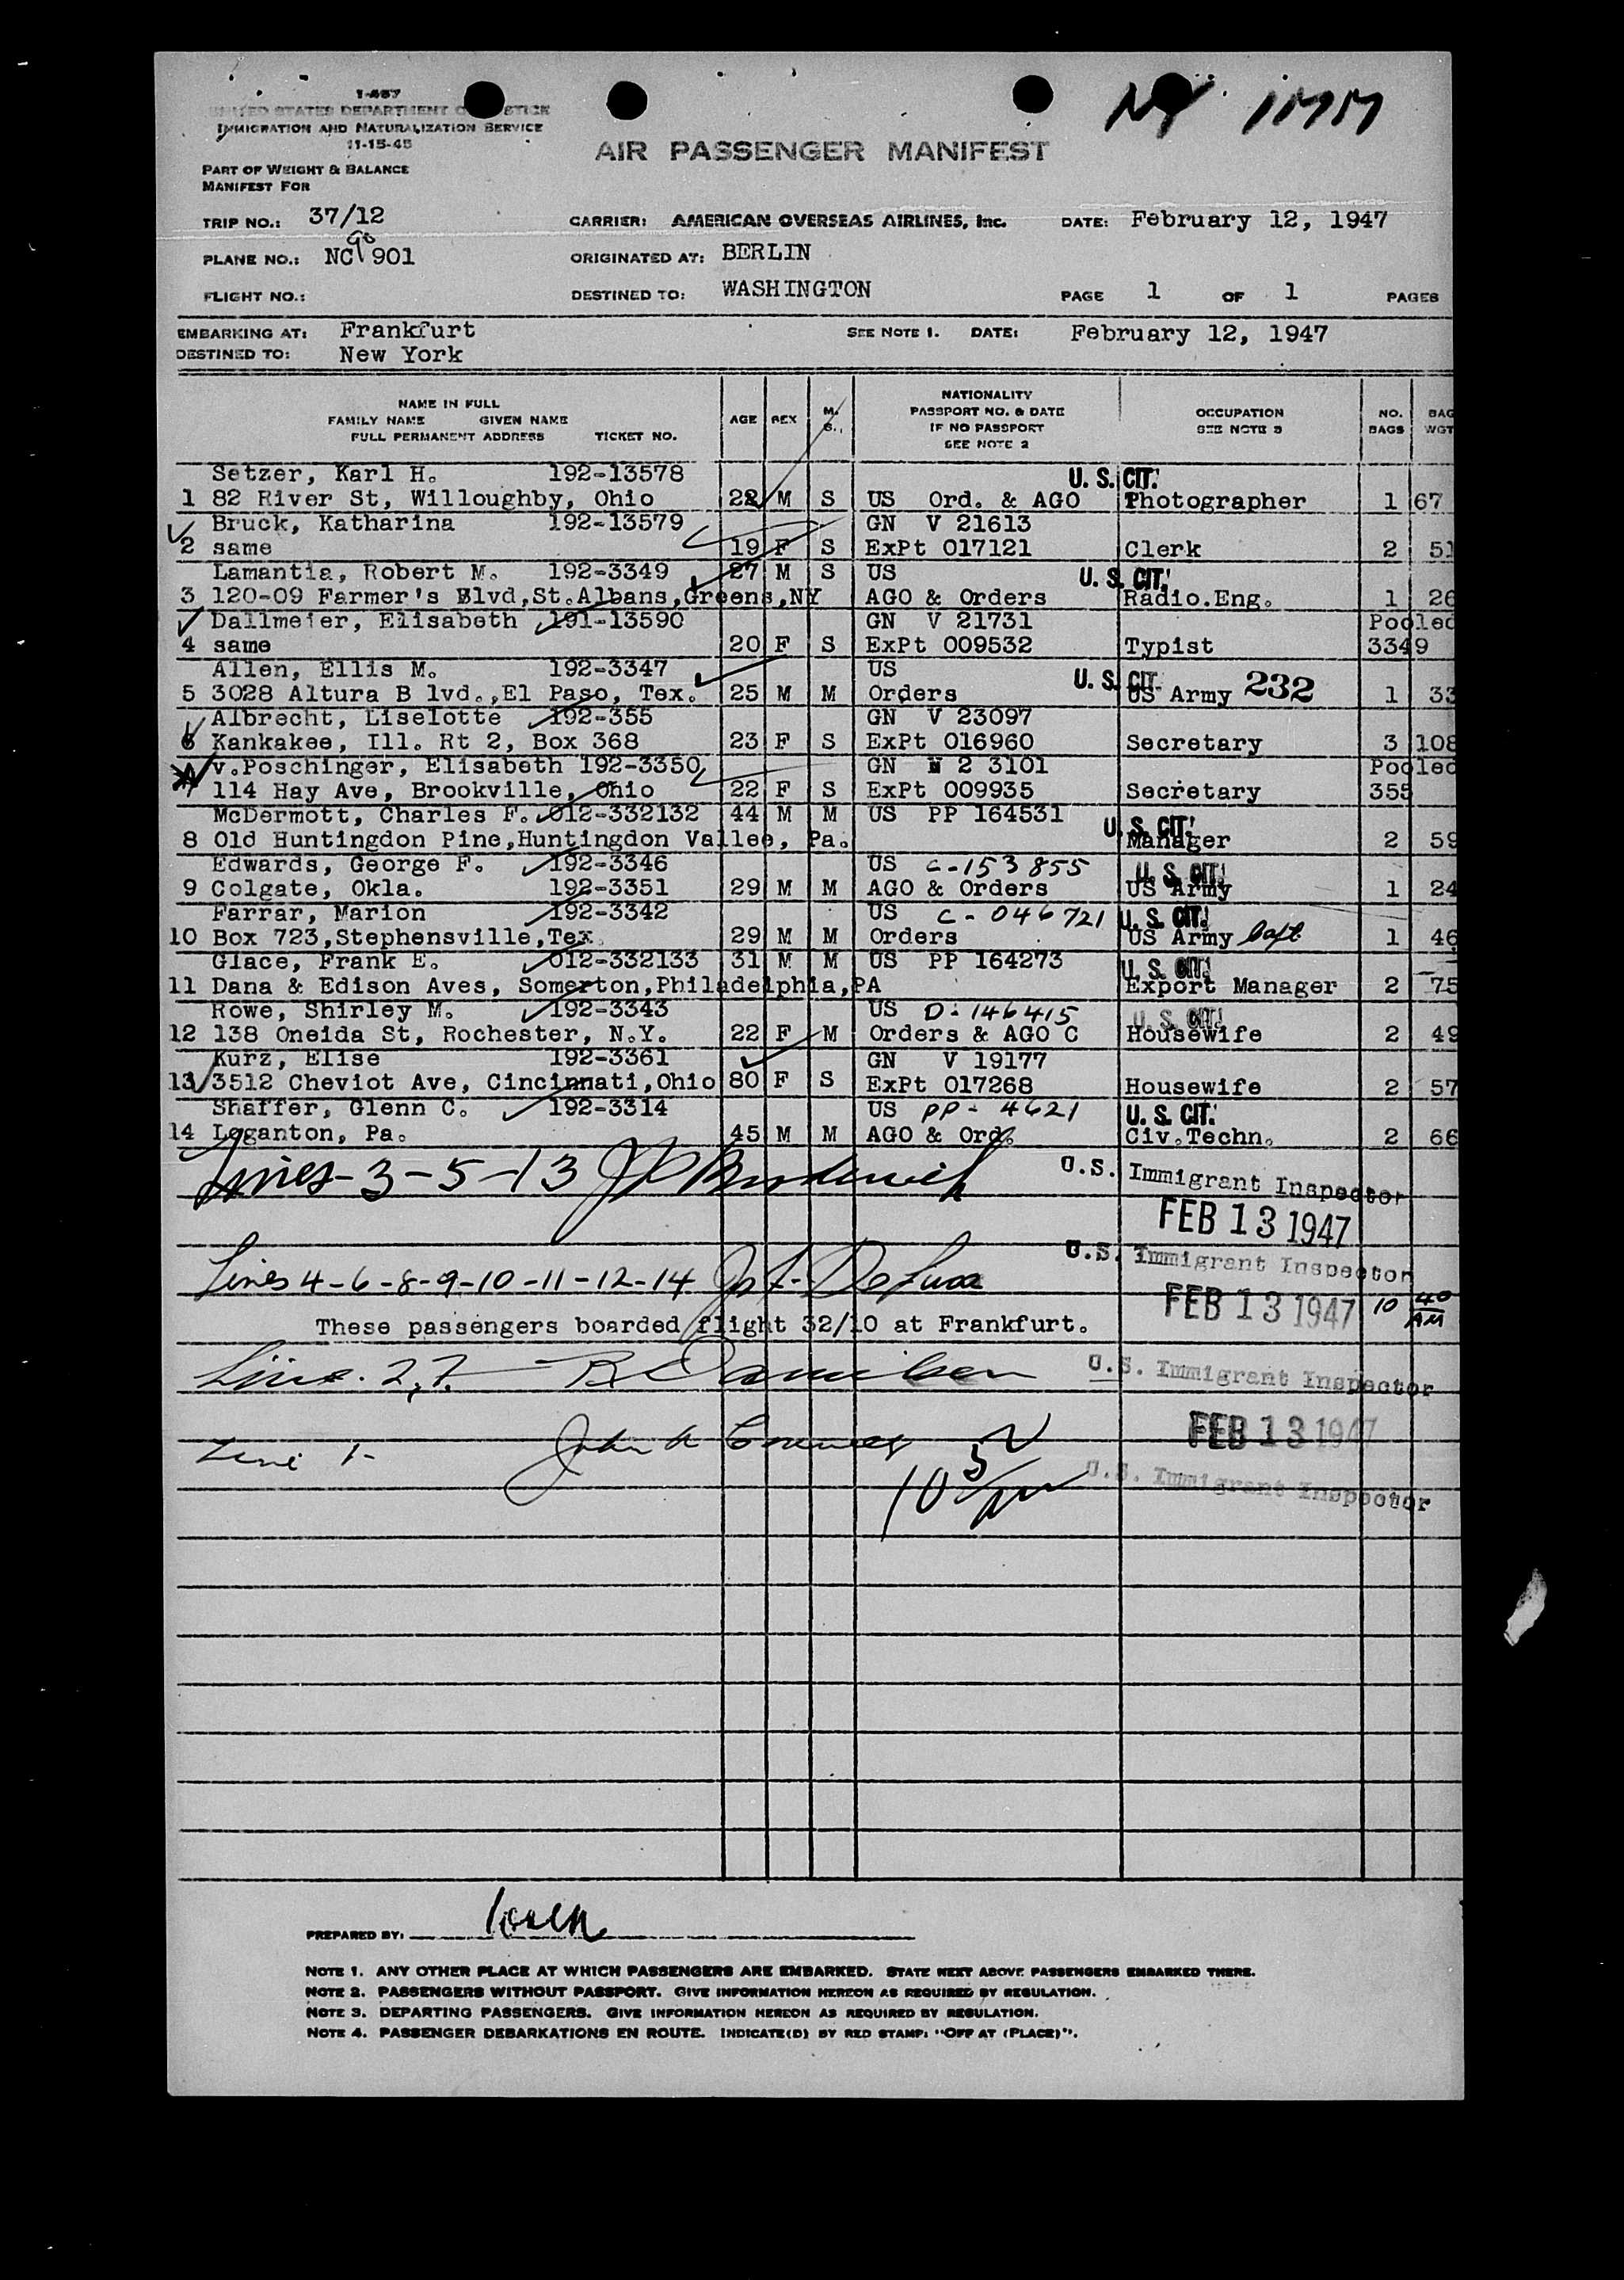 I-467
UNITED STATES DEPARTMENT OF JUSTICE
IMMIGRATION AND NATURALIZATION SERVICE
11-15-45
AIR PASSENGER MANIFEST
PART OF WEIGHT & BALANCE
MANIFEST FOR
TRIP NO.: 37/12 CARRIER: AMERICAN OVERSEAS AIRLINES, Inc. DATE: February 12, 1947
PLANE NO.: NC 90 901 ORIGINATED AT: BERLIN
FLIGHT NO.: DESTINED TO: WASHINGTON PAGE 1 OF 1 PAGES
EMBARKING AT: Frankfurt SEE NOTE 1. DATE: February 12, 1947
DESTINED TO: New York
NAME IN FULL
FAMILY NAME GIVEN NAME
FULL PERMANENT ADDRESS TICKET NO. AGE SEX M. S. NATIONALITY
PASSPORT NO. & DATE
IF NO PASSPORT
SEE NOTE 2 OCCUPATION
SEE NOTE 3 NO.
BAGS BAG
WGT
Setzer, Karl H. 192-13578 U. S. CIT.
1 82 River St, Willoughby, Ohio 22 M S US Ord. & AGO Photographer 1 67
Bruck, Katharina 192-13579 GN V 21613
2 same 19 F S ExPt 017121 Clerk 2 51
Lamantia, Robert M. 192-3349 27 M S US U. S. CIT.
3 120-09 Farmer's Blvd,St.Albans,Greens,NY AGO & Orders Radio.Eng. 1 26
Dallmeier, Elisabeth 191-13590 GN V 21731 Pooled
4 same 20 F S ExPt 009532 Typist 3349
Allen, Ellis M. 192-3347 US U. S. CIT.
5 3028 Altura B lvd.,El Paso, Tex. 25 M M Orders US Army 232 1 33
Albrecht, Liselotte 192-355 GN V 23097
6 Kankakee, Ill. Rt 2, Box 368 23 F S ExPt 016960 Secretary 3 108
v.Poschinger, Elisabeth 192-3350 GN 2 3101 Pooled
7 114 Hay Ave, Brookville, Ohio 22 F S ExPt 009935 Secretary 355
McDermott, Charles F. 012-332132 44 M M US PP 164531 U. S. CIT.
8 Old Huntingdon Pine,Huntingdon Vallee, Pa. Manager 2 59
Edwards, George F. 192-3346 US C-153855 U. S. CIT.
9 Colgate, Okla. 192-3351 29 M M AGO & Orders US Army 1 24
Farrar, Marion 192-3342 US C-046721 U. S. CIT.
10 Box 723,Stephensville,Tex. 29 M M Orders US Army Capt. 1 46
Glace, Frank E. 012-332133 31 M M US PP 164273 U. S. CIT.
11 Dana & Edison Aves, Somerton,Philadelphia,PA Export Manager 2 75
Rowe, Shirley M. 192-3343 US D-146415 U. S. CIT.
12 138 Oneida St, Rochester, N.Y. 22 F M Orders & AGO C Housewife 2 49
Kurz, Elise 192-3361 GN V 19177
13 3512 Cheviot Ave, Cincinnati,Ohio 80 F S ExPt 017268 Housewife 2 57
Shaffer, Glenn C. 192-3314 US PP- 4621 U. S. CIT.
14 Loganton, Pa. 45 M M AGO & Ord. Civ.Techn. 2 66
Lines-3-5-13 U.S. Immigrant Inspector
FEB 13 1947
Lines 4-6-8-9-10-11-12-14 U.S. Immigrant Inspector
FEB 13 1947 10 40 AM
These passengers boarded flight 32/10 at Frankfurt.
Line. 2,7. U.S. Immigrant Inspector
FEB 13 1947
Line 1- John
U.S. Immigrant Inspector
PREPARED BY:
NOTE 1. ANY OTHER PLACE AT WHICH PASSENGERS ARE EMBARKED. STATE NEXT ABOVE PASSENGERS EMBARKED THERE.
NOTE 2. PASSENGERS WITHOUT PASSPORT. GIVE INFORMATION HEREON AS REQUIRED BY REGULATION.
NOTE 3. DEPARTING PASSENGERS. GIVE INFORMATION HEREON AS REQUIRED BY REGULATION.
NOTE 4. PASSENGER DEBARKATIONS EN ROUTE. INDICATE(D) BY RED STAMP: "OFF AT (PLACE)".